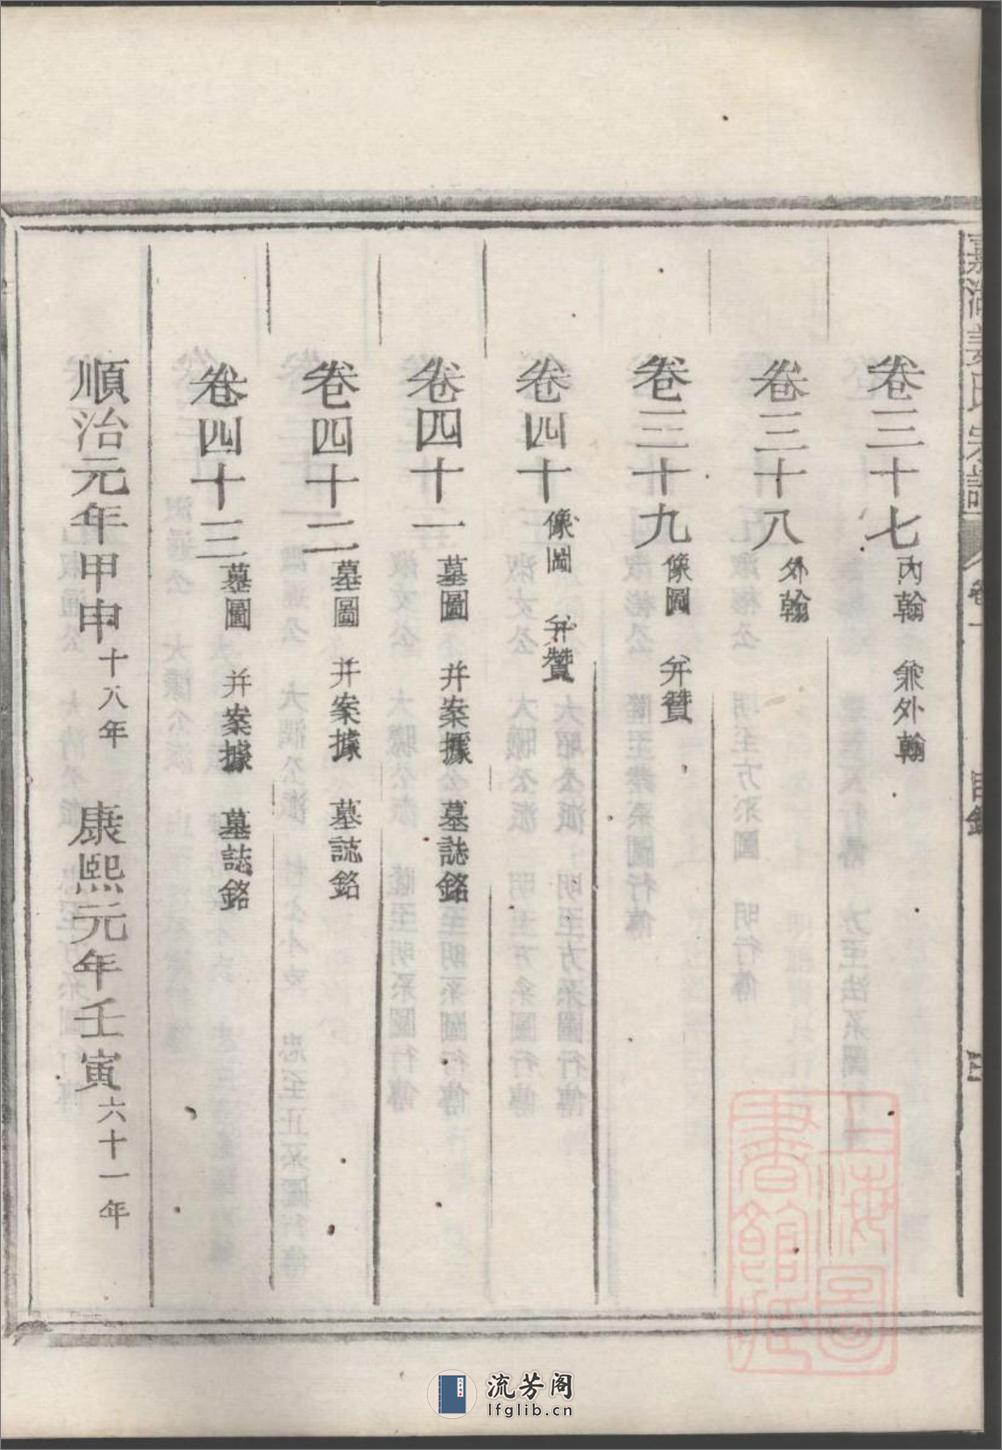 嘉湖姜氏宗譜 卷一 目錄
卷三十七 內翰 兼外翰
卷三十八 外翰
卷三十九 像圖 并贊
卷四十 像圖 并贊
卷四十一 墓圖 并案據 墓誌銘
卷四十二 墓圖 并案據 墓誌銘
卷四十三 墓圖 并案據 墓誌銘
順治元年甲申十八年 康熙元年壬寅六十一年
上海圖書館藏
流芳阁
lfglib.cn